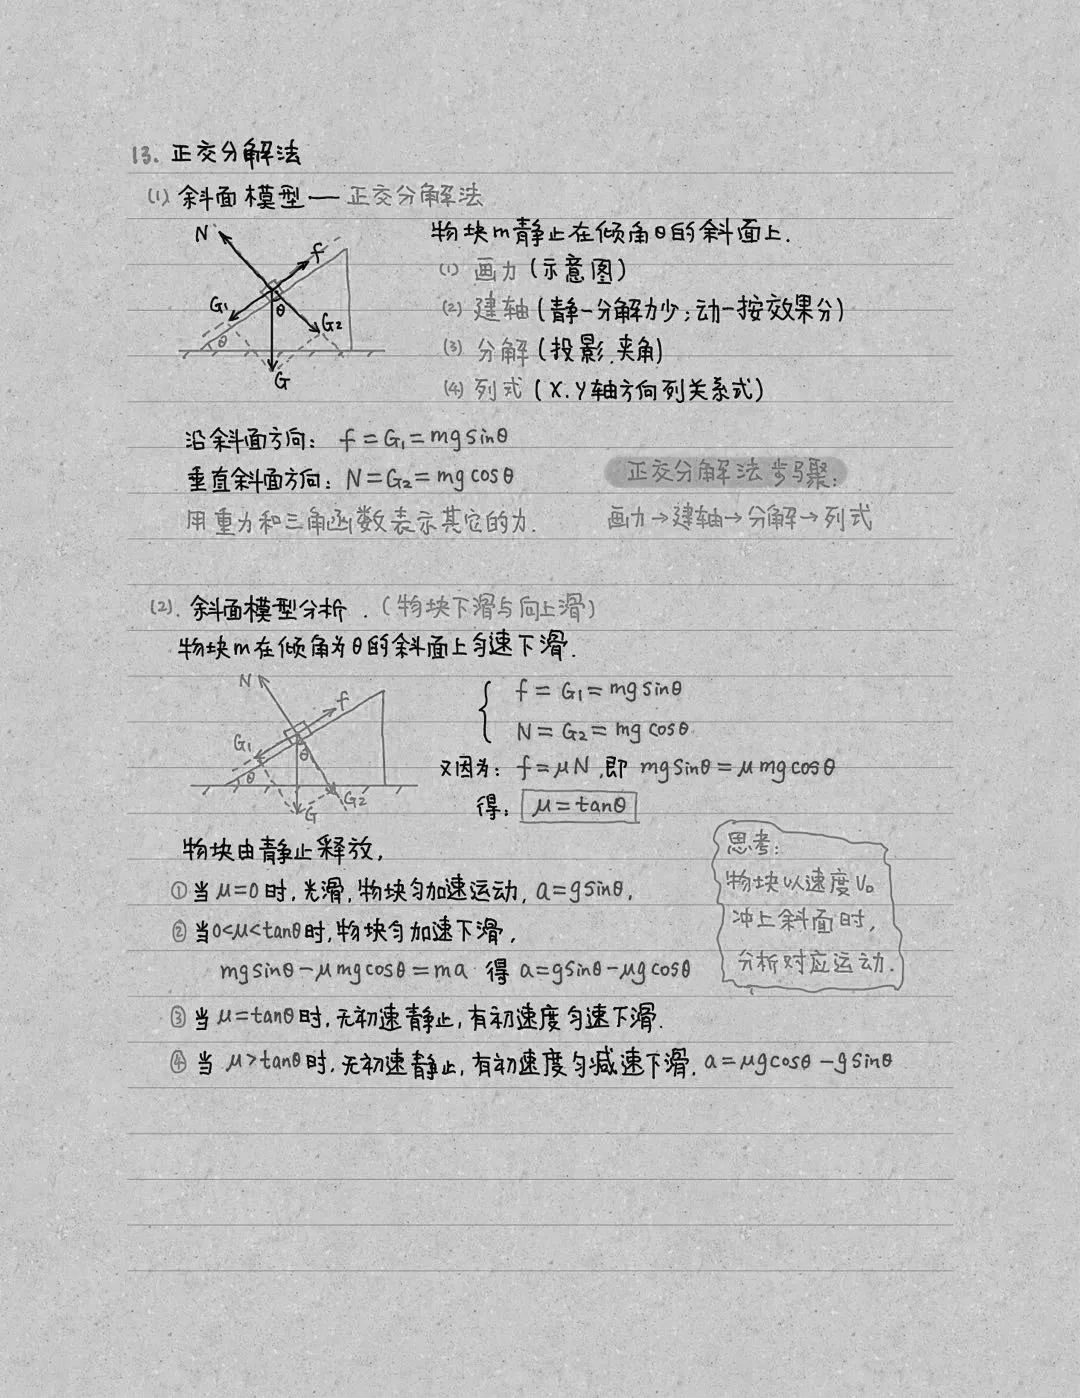 13. 正交分解法
(1) 斜面模型 — 正交分解法
N
f
G₁
θ
G₂
θ
G
物块m静止在倾角θ的斜面上.
(1) 画力 (示意图)
(2) 建轴 (静—分解力少;动—按效果分)
(3) 分解 (投影.夹角)
(4) 列式 (X.Y轴方向列关系式)
沿斜面方向: f=G₁=mgsinθ
垂直斜面方向: N=G₂=mgcosθ
用重力和三角函数表示其它的力.
正交分解法步骤:
画力→建轴→分解→列式
(2). 斜面模型分析. (物块下滑与向上滑)
物块m在倾角为θ的斜面上匀速下滑.
N
f
G₁
θ
θ
G₂
G
f=G₁=mgsinθ
N=G₂=mgcosθ
又因为: f=μN,即 mgsinθ=μmgcosθ
得: μ=tanθ
物块由静止释放,
①当μ=0时,光滑,物块匀加速运动, a=gsinθ.
②当0<μ<tanθ时,物块匀加速下滑,
mgsinθ-μmgcosθ=ma 得 a=gsinθ-μgcosθ
③当μ=tanθ时,无初速静止,有初速度匀速下滑.
④当μ>tanθ时,无初速静止,有初速度匀减速下滑. a=μgcosθ-gsinθ
思考:
物块以速度V₀
冲上斜面时,
分析对应运动.